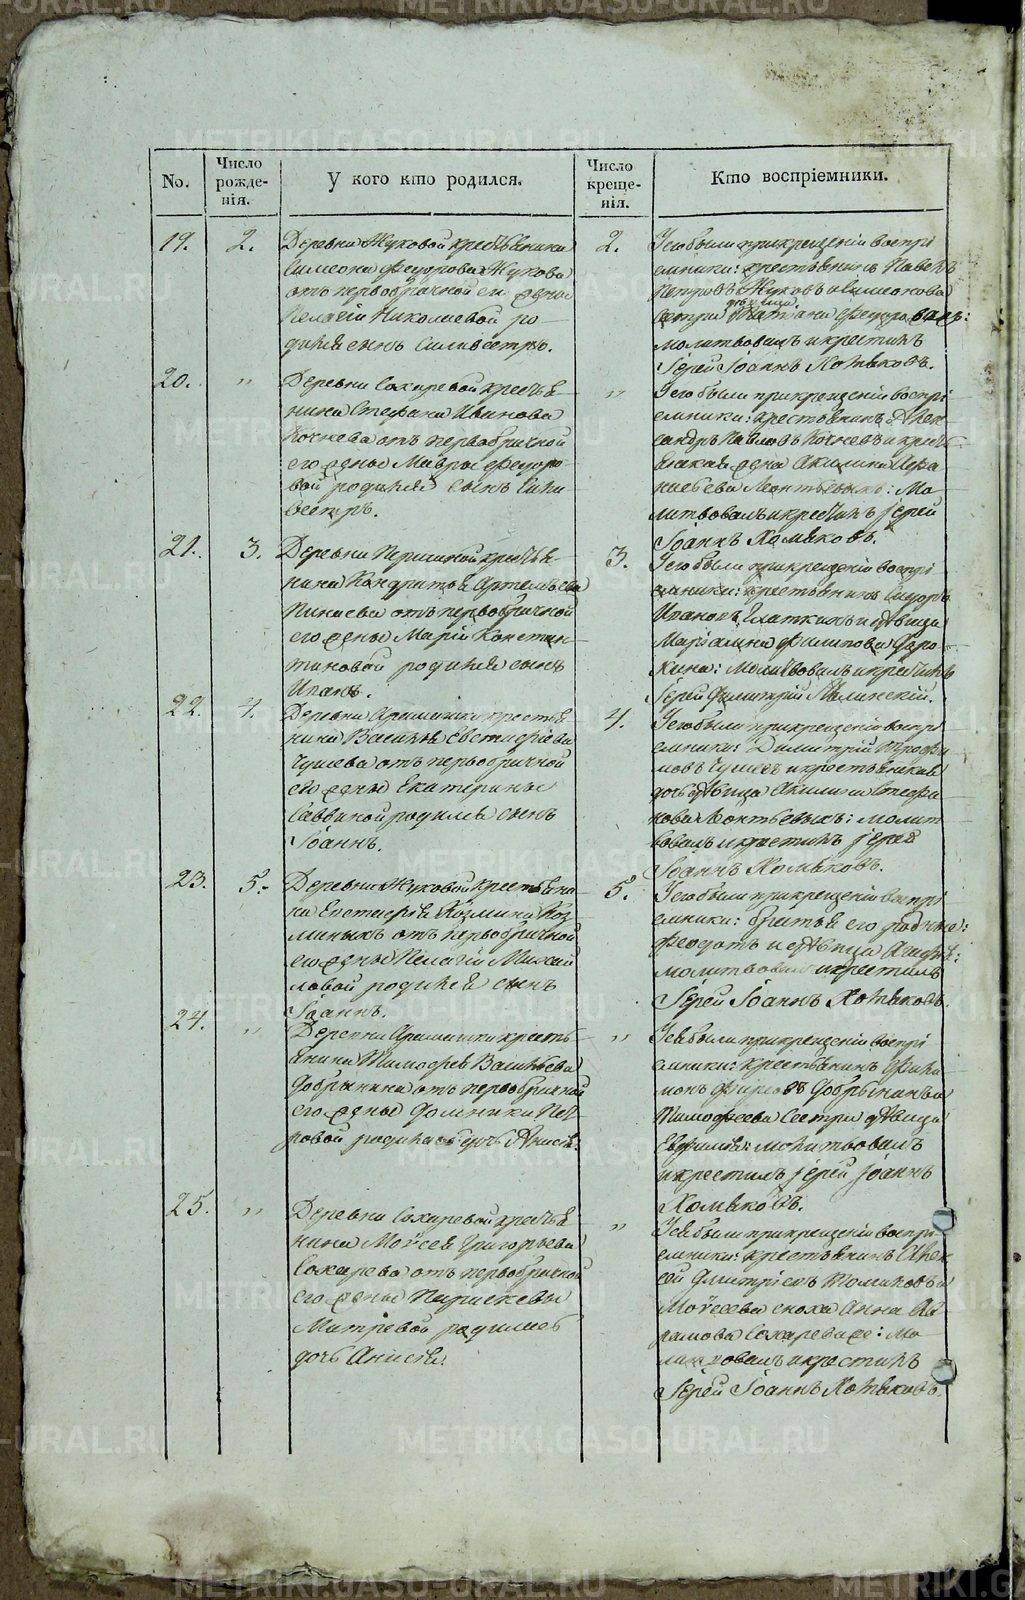 No.
Число рожде-
нія.
У кого кто родился.
Число креще-
нія.
Кто воспріемники.
19.
2.
Деревни Жуковой крестьянина
Симеона Федорова Жукова
отъ первобрачной ея жены
Пелагіи Николаевой ро-
дился сынъ Силивестръ.
2.
У его были при крещеніи воспрі
емники: крестьянинъ Павелъ
Петровъ Жуковъ и Симеонова
сестра дѣвица Татіана Федорова:
молитвовалъ и крестилъ
Іерей Іоаннъ Хомяковъ.
20.
"
Деревни Сохаревой крестья
нина Стефана Иванова
Кочнева отъ первобрачной
его жены Мавры Федоро
вой родился сынъ Сили
вестръ.
"
У его были при крещеніи воспрі
емники: крестьянинъ Алек
сандръ Павловъ Кочневъ и кресть
янская жена Акилина
Леонтьевыхъ: Мо
литвовалъ и крестилъ іерей
Іоаннъ Хомяковъ.
21.
3.
Деревни крестья
нина Кондратья Артемьева
Пинаева отъ первобрачной
его жены Маріи Констан
тиновой родился сынъ
Иванъ.
3.
У его были при крещеніи воспрі
емники: крестьянинъ Сидоръ
Ивановъ и дѣвица
Маріамна Филипова
Молитвовалъ и крестилъ
Іерей Димитрій
22.
4.
Деревни Арамашки крестья
нина Василья Евстафіева
Чушева отъ первобрачной
его жены Екатерины
Саввиной родился сынъ
Іоаннъ.
4.
У его были при крещеніи воспрі
емники: Димитрій Трофи
мовъ Чушевъ и крестьянская
дочь дѣвица Акилина Стефа
нова Леонтьевыхъ: молит
вовалъ и крестилъ іерей
Іоаннъ Хомяковъ.
23.
5.
Деревни Жуковой крестьяни
на Евстафья Козмина Коз
миныхъ отъ первобрачной
его жены Пелагіи Михай
ловой родился сынъ
Іоаннъ.
5.
У его были при крещеніи воспрі
емники: братья его родные:
Феодотъ и дѣвица
молитвовалъ и крестилъ
Іерей Іоаннъ Хомяковъ.
24.
"
Деревни Арамашки кресть
янина Тимофея Васильева
Добрынина отъ первобрачной
его жены Домники Пет
ровой родилась дочь Анисья.
"
У ея были при крещеніи воспрі
емники: крестьянинъ Фили
монъ Добрынинъ и
Тимофеева сестра дѣвица
Евфимія: молитвовалъ
и крестилъ іерей Іоаннъ
Хомяковъ.
25.
"
Деревни Сохаревой крестья
нина Моѵсея Григорьева
Сохарева отъ первобрачной
его жены Параскевы
Митревой родилась
дочь Анисья.
"
У ея были при крещеніи воспрі
емники: крестьянинъ Алек
сей Дмитріевъ Томиловъ и
Моѵсеева сноха Анна Ав
рамова Сохарева же: Мо
литвовалъ и крестилъ
Іерей Іоаннъ Хомяковъ.
METRIKI.GASO-URAL.RU